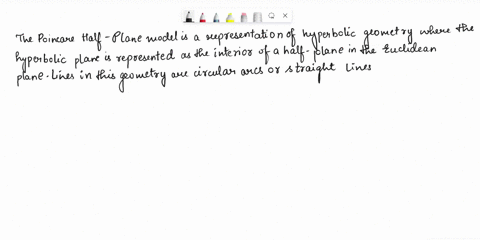 The Poincare Half-Plane model is a representation of hyperbolic geometry where the
hyperbolic plane is represented as the interior of a half-plane in the Euclidean
plane. Lines in this geometry are circular arcs or straight lines